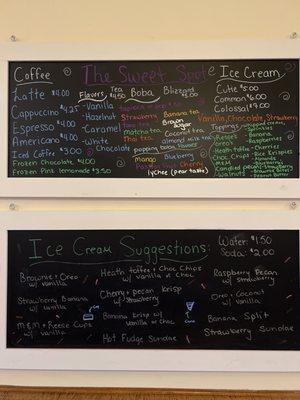 The Sweet Spot
Coffee
Latte $4.00
Cappuccino $4.25
Espresso $4.00
Americano $4.00
Iced Coffee $3.00
Frozen Chocolate $4.00
Frozen Pink lemonade $3.50
Flavors
-Vanilla
-Hazelnut
-Caramel
-White
Chocolate
Tea
$4.50
Boba
Blizzard
$5.00
Strawberry
Banana tea
Taro tea
Brown
sugar
Matcha tea
Coconut tea
Thai tea
almond milk tea
popping boba flavors
Mango
Blueberry
Passion
Cherry
lychee (pear taste)
Ice Cream
Cutie $5.00
Common $6.00
Colossal $9.00
Vanilla, Chocolate, Strawberry
Toppings
-Oreos
-Reeses
-Heath toffee
-Choc Chips
-M&M
-Sprinkles
-Banana
-Cherries
-Rice Krispies
-Almonds
-Blueberry
-Strawberry
-Walnuts
-Brownie
Ice Cream Suggestions:
Water: $1.50
Soda: $2.00
Brownie + Oreo
w/ vanilla
Heath toffee + Choc Chips
w/ vanilla
Raspberry Pecan
w/ strawberry
Strawberry Banana
w/ vanilla
Cherry + pecan krisp
w/ strawberry
Oreo + Coconut
w/ vanilla
M&M + Reese Cups
w/ vanilla
Banana krisp w/
vanilla or choc
Banana Split
Hot Fudge Sundae
Strawberry Sundae